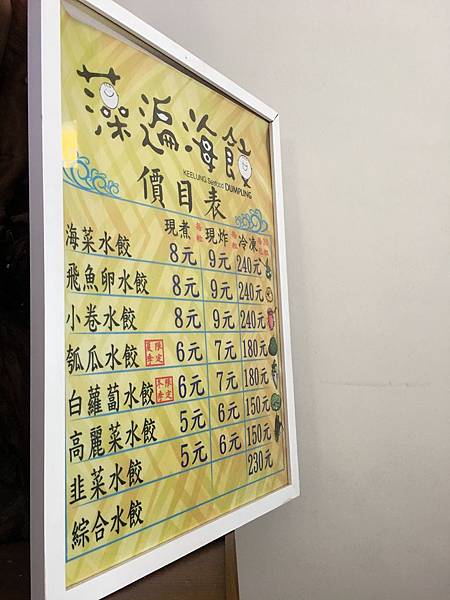 藻遍海餃
KEELUNG Seafood DUMPLING
價目表
現煮 每粒 現炸 每粒 冷凍
海菜水餃 8元 9元 240元
飛魚卵水餃 8元 9元 240元
小卷水餃 8元 9元 240元
瓠瓜水餃 夏季限定 6元 7元 180元
白蘿蔔水餃 冬季限定 6元 7元 180元
高麗菜水餃 5元 6元 150元
韭菜水餃 5元 6元 150元
綜合水餃 230元